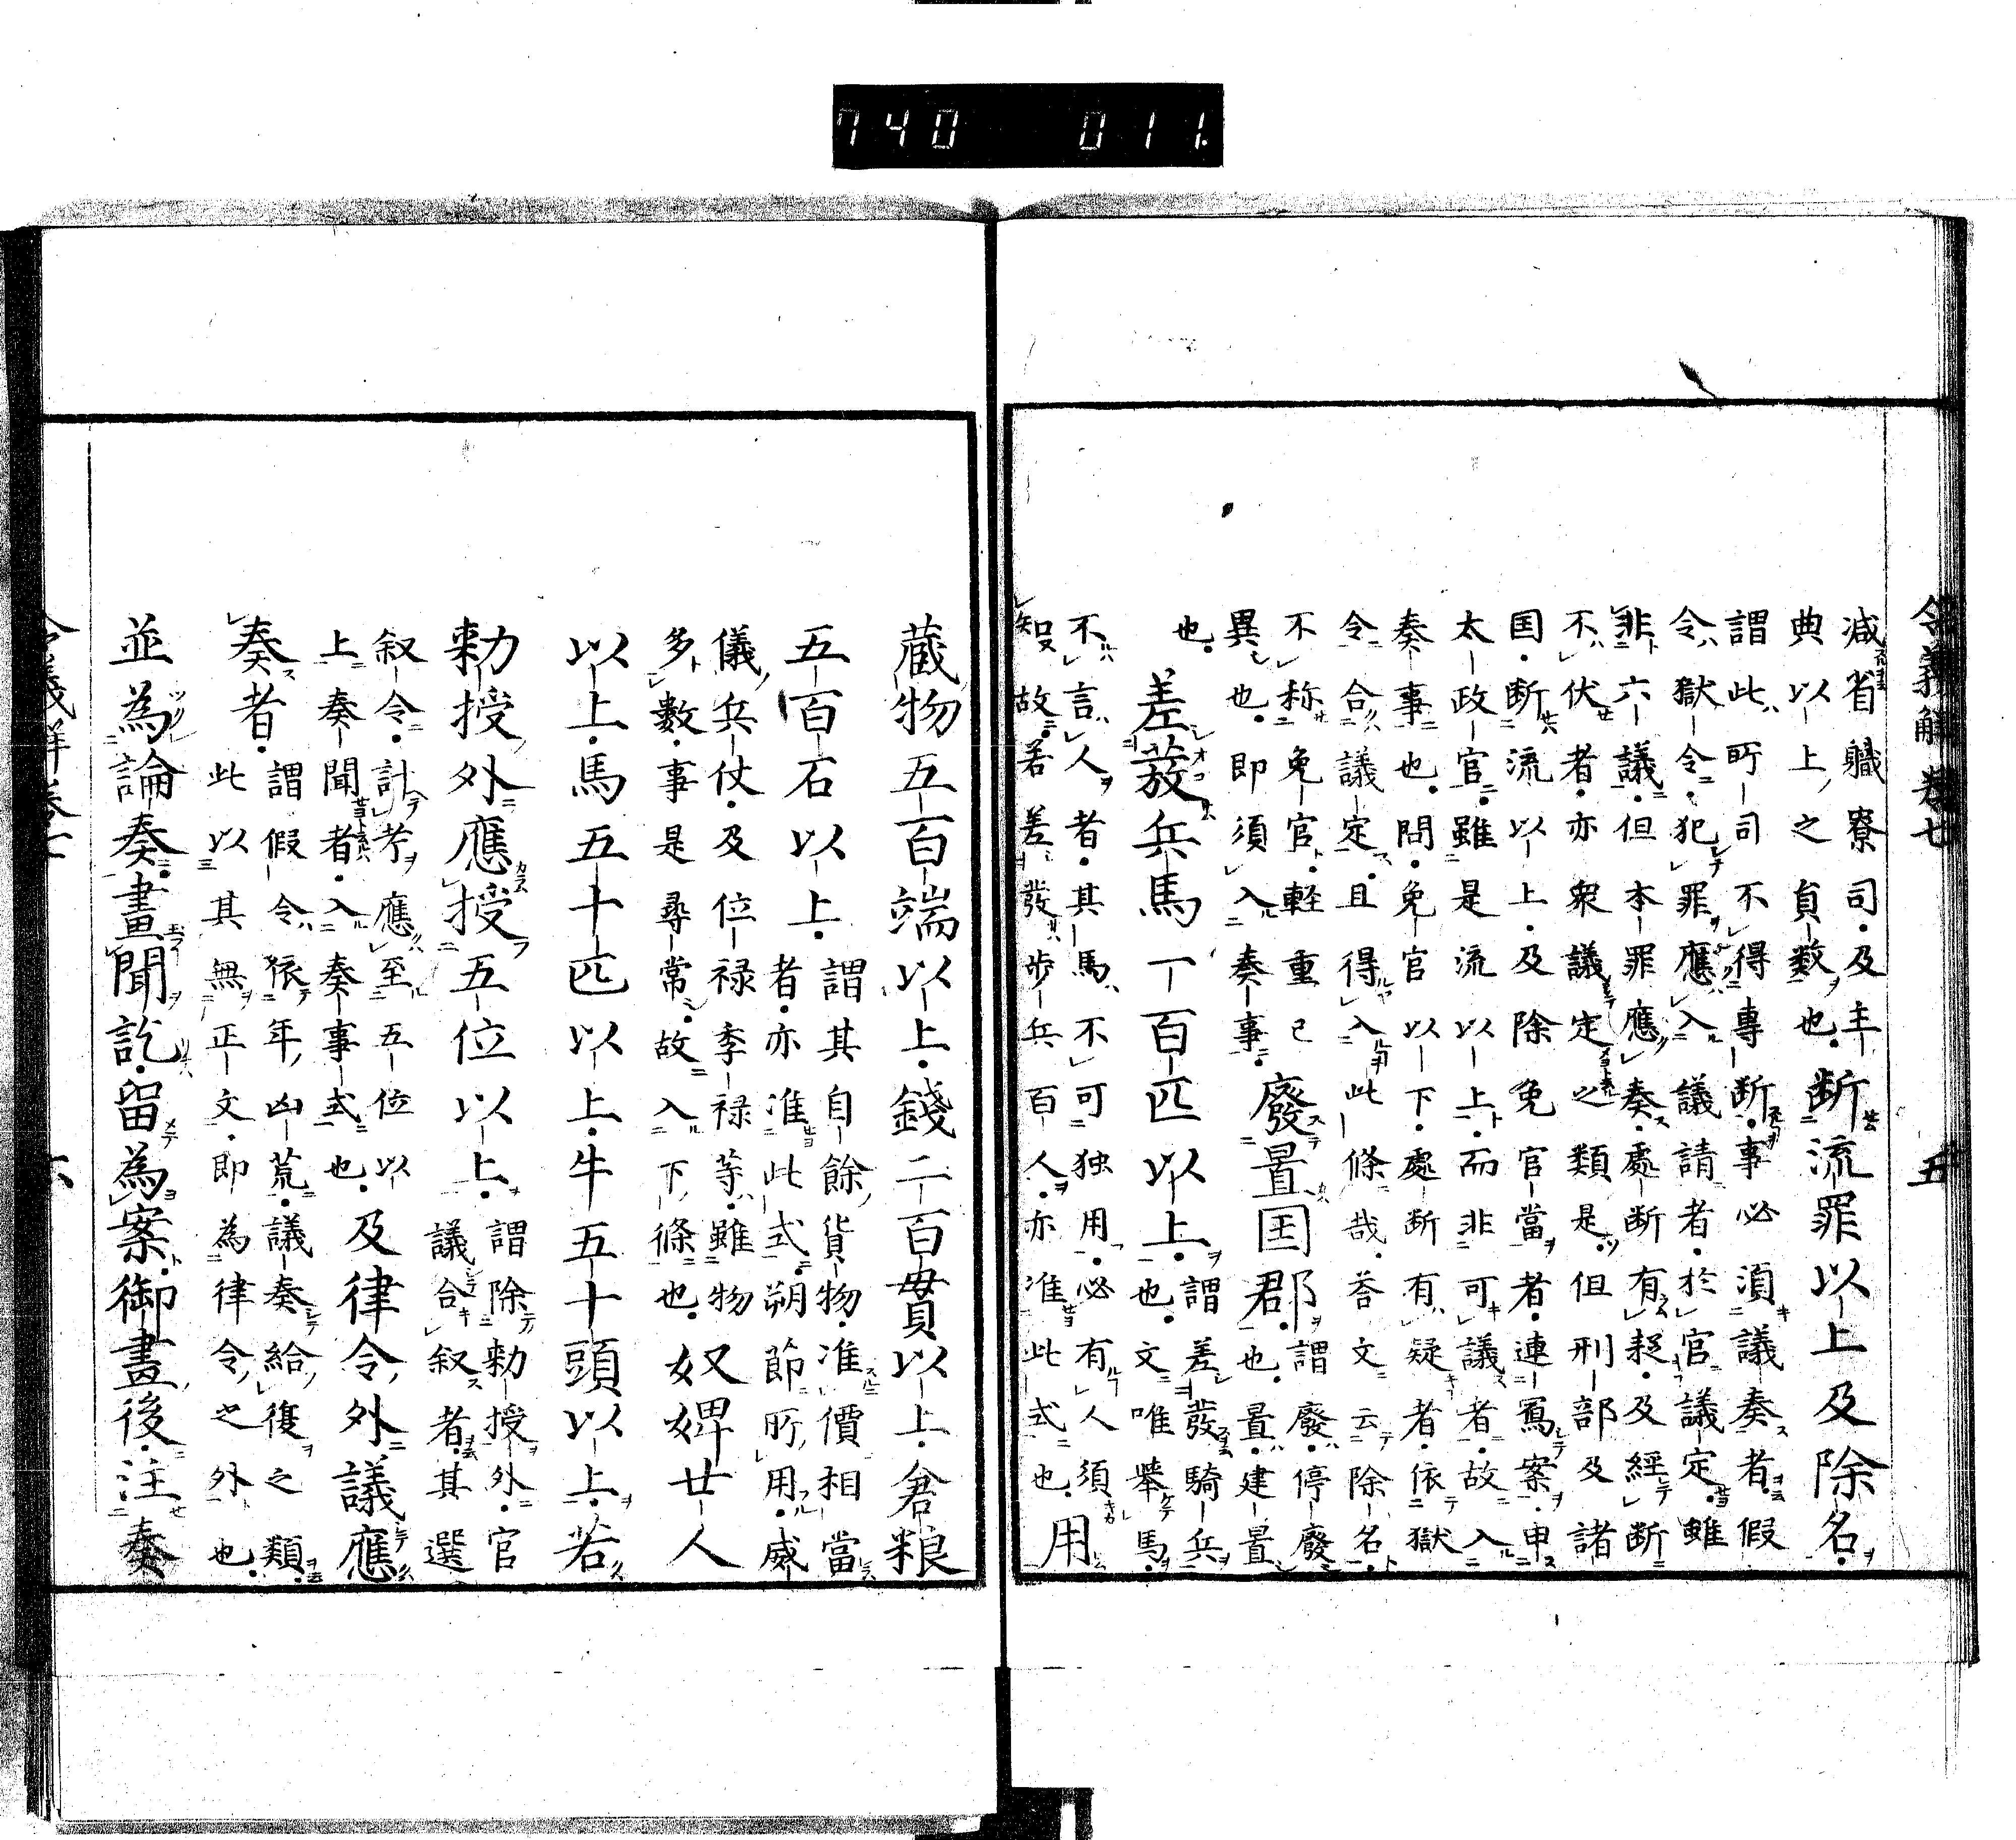 令義解 卷七 五
減省職寮司・及主
典以上之員數也・
断流罪以上及除名・
謂此所司不得專断・事必須議奏者・假
令獄令・犯罪應入議請者・於官議定・雖
非六議・但本罪應奏・處断有疑・及經断
不伏者・亦衆議定之類是・但刑部及諸
国・断流以上・及除免官當者・連寫案・申
太政官・雖是流以上・而非可議者・故入
奏事也・問・免官以下・處断有疑者・依獄
令合議定・且得入此條哉・荅文云除名・
不称免官・輕重已
異也・即須入奏事・
廢置国郡・
謂廢・停廢
也・置・建置
也・
差發兵馬一百匹以上・
謂差發騎兵
也・文唯舉馬・
不言人者・其馬不可独用・必有人須
知故・若差發歩兵百人・亦准此式也・
用
蔵物五百端以上・錢二百貫以上・倉粮
五百石以上・
謂其自餘貨物・准價相當
者・亦准此式・朔節所用・威
儀兵仗・及位禄季禄等・雖物
多數・事是尋常・故入下條也・
奴婢廿人
以上・馬五十匹以上・牛五十頭以上・若
勅授外應授五位以上・
謂除勅授外・官
議合叙者・其選
叙令・計考應至五位以
上奏聞者・入奏事式也・
及律令外議應
奏者・
謂假令依年凶荒・議奏給復之類・
此以其無正文・即為律令之外也・
並為論奏・畫聞訖・留為案・御畫後・注奏
令義解卷七 六